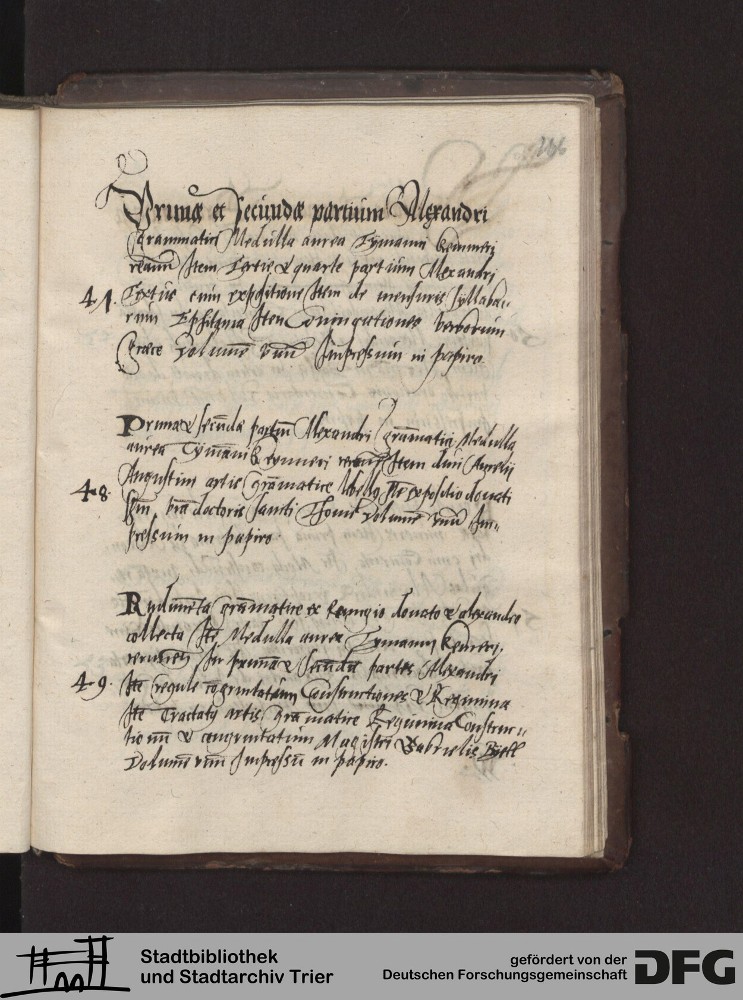 Primæ et Secundæ partium Alexandri
Grammatici Medulla aurea Tymanni kemmerj
Item Tertie & quarte partium Alexandri
47. enim expositione Item de mensuris syllaba-
rum Epistoma Item Coniugationes verborum
Grece Volumē vnū Impressum in papiro
Primæ & secundæ partiū Alexandri grāmatici Medulla
aurea Tymanni Item diui Aurelij
48. Augustini artis grāmatice libellꝰ Itē expositio donati
doctoris sancti Thome Volumē vnū Im-
pressum in papiro
Rudimēta grāmatice ex Remigio donato & alexandro
collecta Itē Medulla aurea Tymanni
In primā & Secundā partes Alexandri
49. Itē regule cōgruitatum Constructiones & Regimina
Itē Tractatꝰ artis grāmatice Regimina Construc-
tionū & congruitatum Magistri Gabrielis Byell
Volumē vnū Impressū in papiro.
Stadtbibliothek
und Stadtarchiv Trier
gefördert von der
Deutschen Forschungsgemeinschaft
DFG